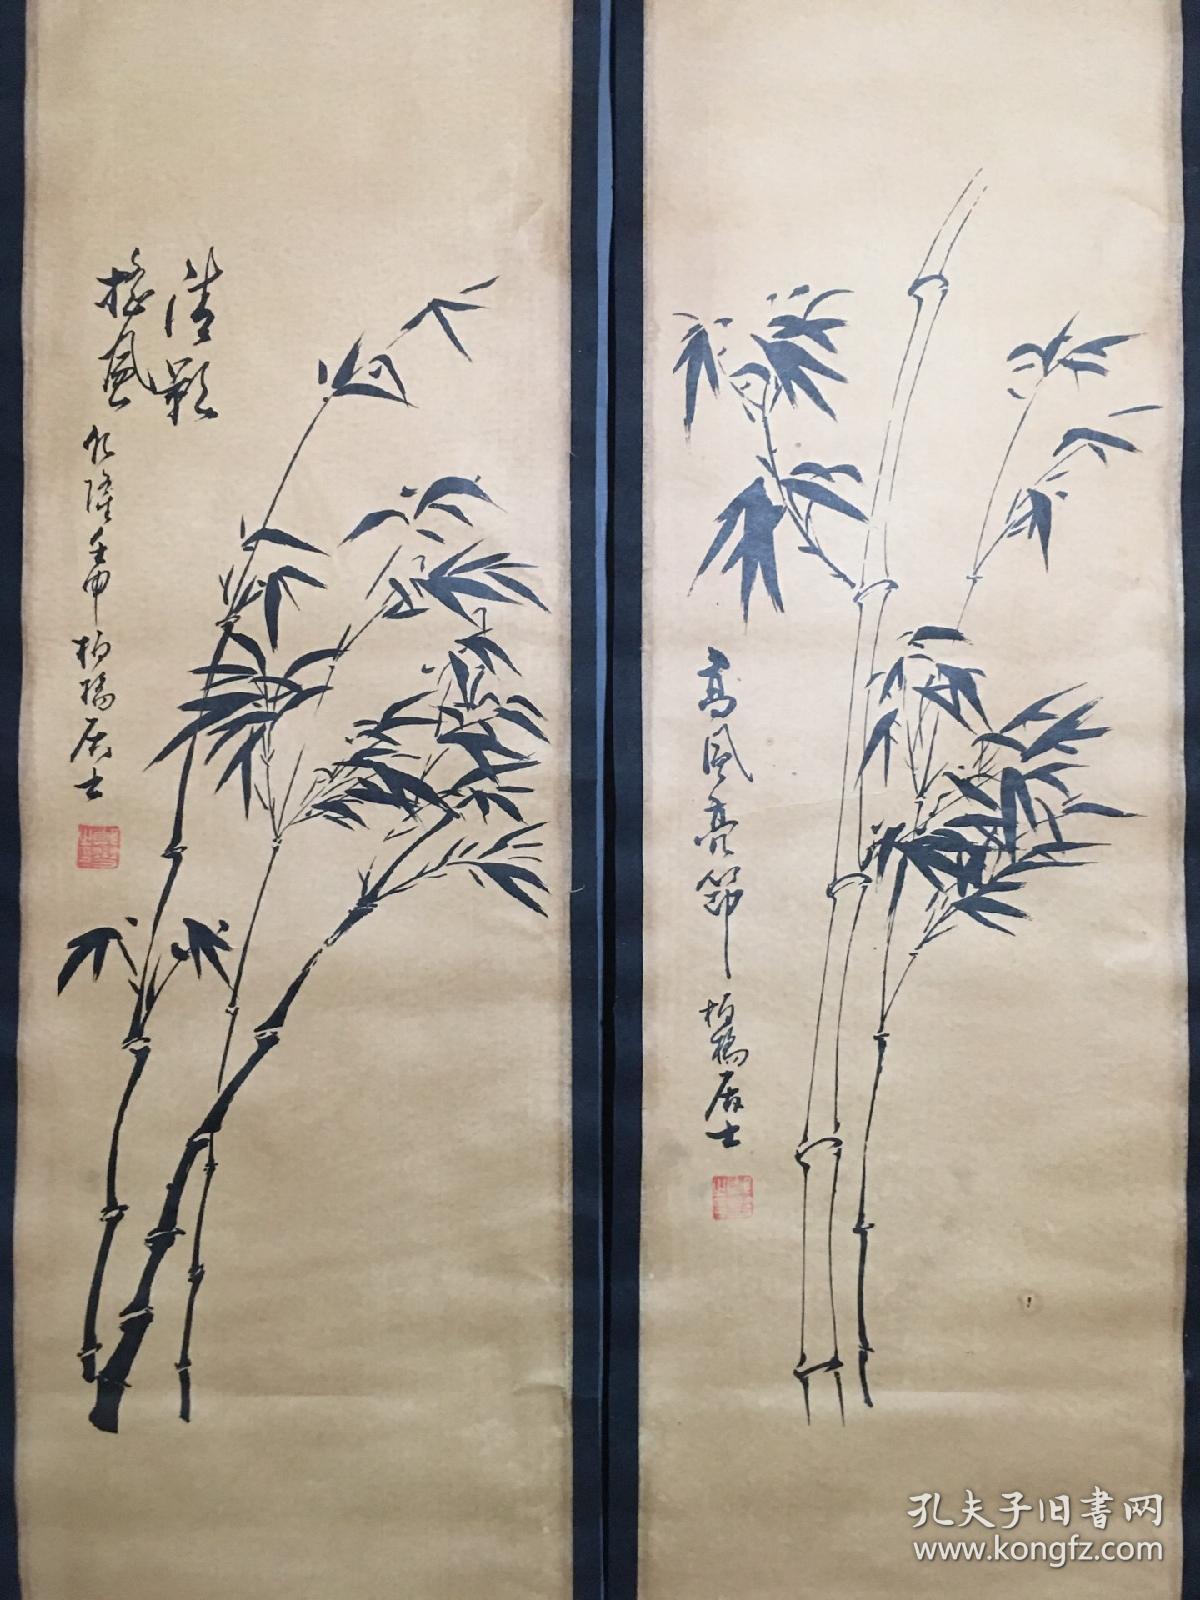 清影
摇風
乾隆壬申柏橋居士
高風亮節
柏橋居士
孔夫子旧书网
www.kongfz.com